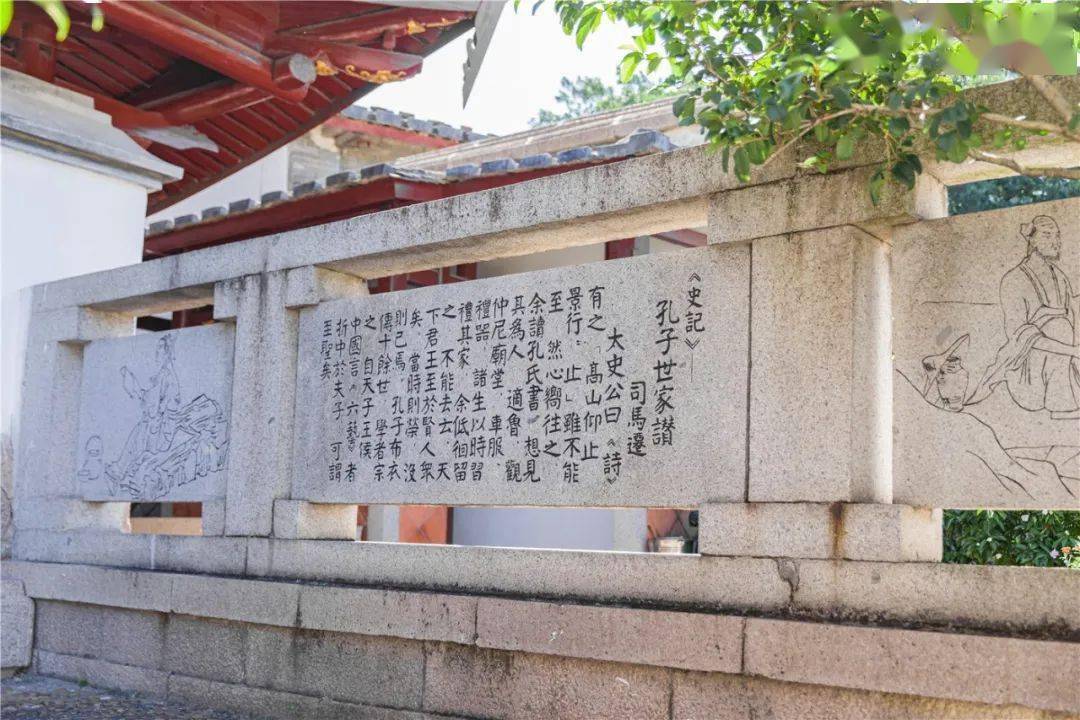 《史記》
孔子世家讃
司馬遷
太史公曰《詩》
有之，高山仰止
景行、止」雖不能
至 然心嚮往之
余讀孔氏書，想見
其為人 適魯，觀
仲尼廟堂，車服、
禮器 諸生以時習
禮其家 余低徊留
之 不能去云、天
下君王至於賢人衆
矣 當時則榮，没
則已焉。孔子布衣
傳十餘世 學者宗
之 自天子王侯
中國言《六藝》者
折中於夫子 可謂
至聖矣